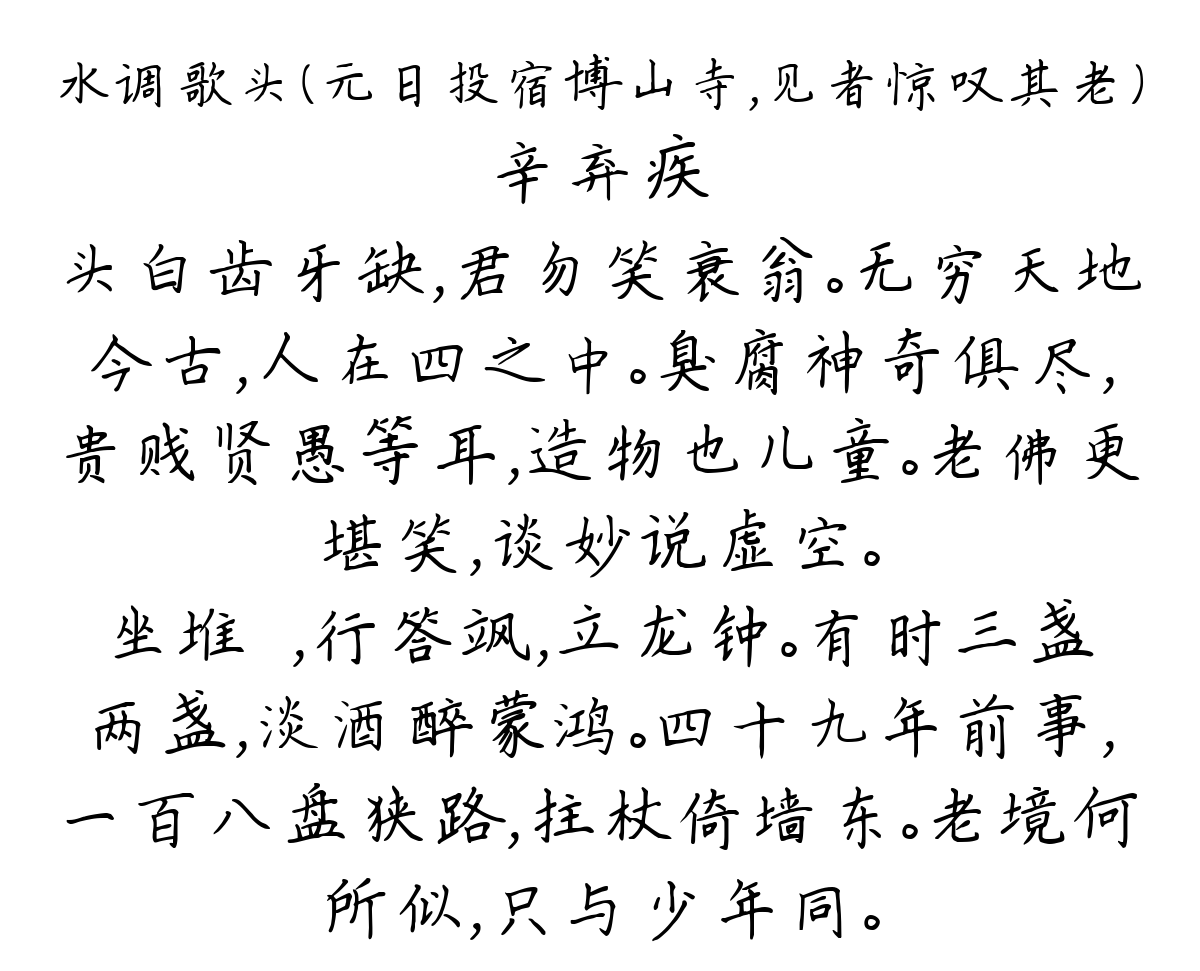 水调歌头(元日投宿博山寺,见者惊叹其老)
辛弃疾
头白齿牙缺,君勿笑衰翁。无穷天地
今古,人在四之中。臭腐神奇俱尽,
贵贱贤愚等耳,造物也儿童。老佛更
堪笑,谈妙说虚空。
坐堆 ,行答飒,立龙钟。有时三盏
两盏,淡酒醉蒙鸿。四十九年前事,
一百八盘狭路,拄杖倚墙东。老境何
所似,只与少年同。